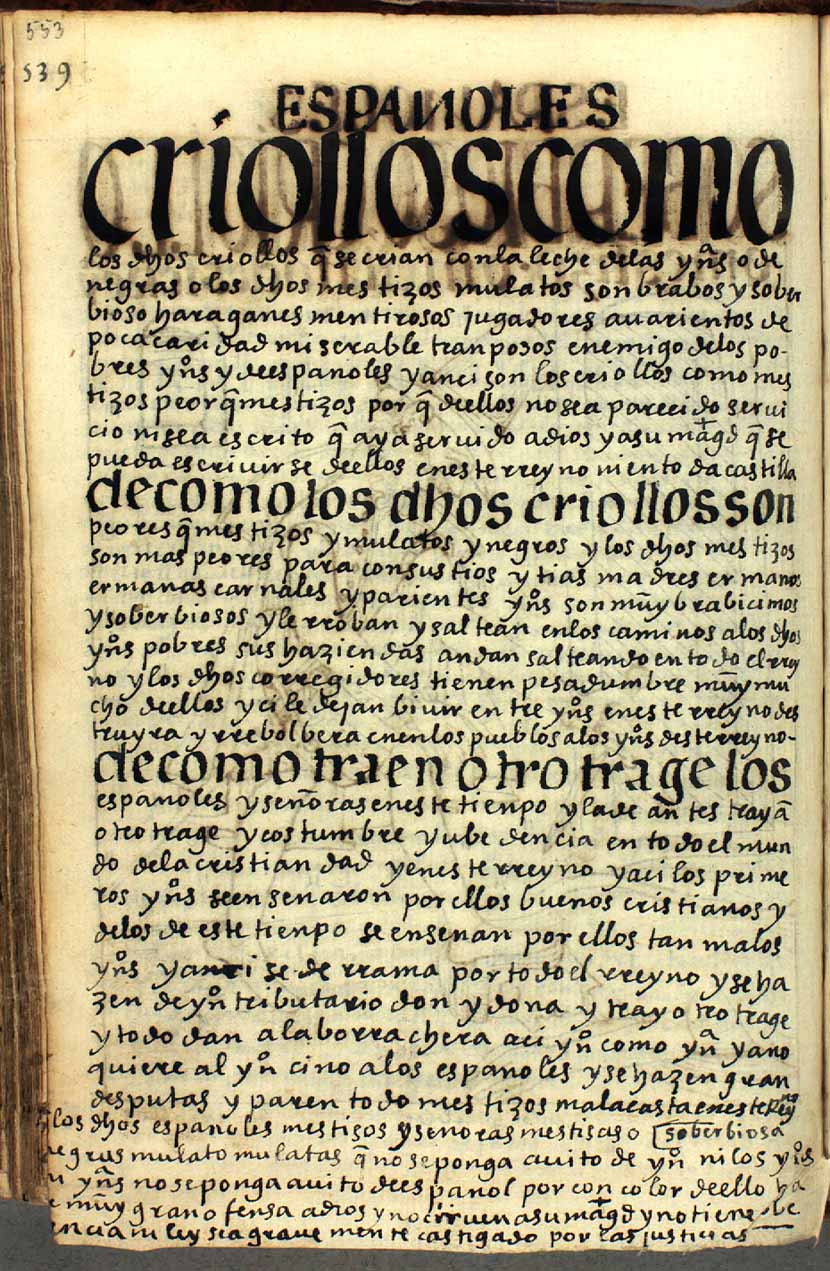 553
539
ESPAÑOLES
criolloscomo
los dhos criollos q̃ se crian con la leche delas yn̄s o de
negras o los dhos mestizos mulatos son brabos y sober
bioso haraganes mentirosos jugadores auarientos de
poca caridad miserable tranposos enemigo delos po-
bres yn̄s y de espanoles y anci son los criollos como mes
tizos peor q̃ mestizos por q̃ dellos no se a parecido serui
cio ni se a escrito q̃ aya seruido a dios y a su magd q̃ se
pueda escrivirse deellos en este rreyno ni en toda castilla
decomo los dhos criollos son
peores q̃ mestizos y mulatos y negros y los dhos mestizos
son mas peores para con sus tios y tias madres ermanos
ermanas carnales y parientes yn̄s son muy brabicimos
y soberbiosos y le rroban y saltean en los caminos a los dhos
yn̄s pobres sus haziendas andan salteando en todo el rrey
no y los dhos corregidores tienen pesadumbre muy mu
cho deellos y ci le dejan biuir entre yn̄s en este rreyno des
truyra y rrebolbera en en los pueblos a los yn̄s deste rreyno-
decomo traen otro trage los
espanoles y señoras en este tienpo y la de antes trayā
otro trage y costumbre y ubedencia en todo el mun
do dela cristiandad y en este rreyno y aci los prime
ros yn̄s se ensenaron por ellos buenos cristianos y
delos de este tienpo se ensenan por ellos tan malos
yn̄s y anci se derrama por todo el rreyno y se ha
zen de yn̄ tributario don y dona y tray otro trage
y todo dan a la borrachera aci yn̄ como yn̄a ya no
quiere al yn̄ cino a los espanoles y se hazen gran
des putas y paren todo mestizos mala casta en este rrey
los dhos espanoles mestisos y senoras mestisas o soberbiosa
negras mulato mulatas q̃ no se ponga auito de yn̄ ni los yn̄s
ni yn̄as no se ponga auito de espanol por con color deello ha
se muy gran ofensa a dios y no ciruen a su magd y no tiene ube
encia ni ley sea grauemente castigado por las justicias